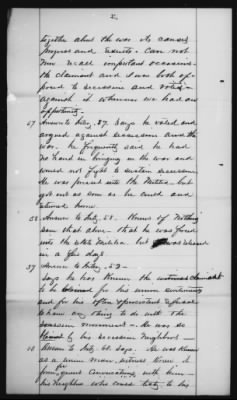 2.
together about the war its causes
progress and Events. Can not
now recall important occasions.
the claimant and I was both op-
posed to secession and voted
against it whenever we had an
oppertunity.
57 Answer to Inty. 57. Says he voted and
argued against secession and the
war. he frequently said he had
no hand in bringing on the war and
would not fight to sustain secession
He was pressed into the Militia. but
got out as soon as he could and
returned home.
58 Answer to Inty. 58. Knows of Nothing
save that above that he was forced
into the State Militia but was released
in a few days
59 Answer to Intery. 59
Says he has Known the claimant
to be for his union sentiments
and for his often refusal
to have any thing to do with the
secession movement. He was so
by his secession Neighbors
60 Answer to Inty. 60. Says. He was Known
as a union man. witness Knew it
from Conversations with him
his Neighbors who came to his